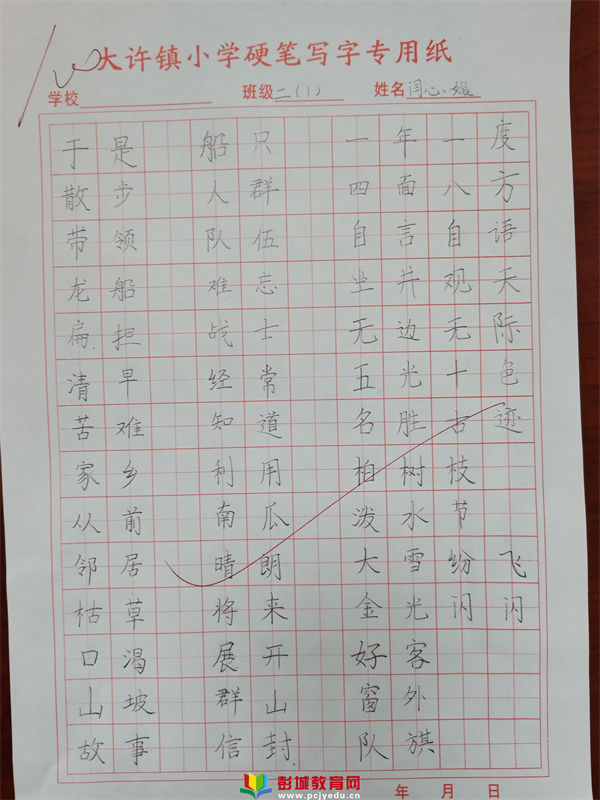 大许镇小学硬笔写字专用纸
学校 班级 二(1) 姓名 闫心媛
于是 船只 一年一度
散步 人群 四面八方
带领 队伍 自言自语
龙船 难忘 坐井观天
扁担 战士 无边无际
清早 经常 五光十色
苦难 知道 名胜古迹
家乡 利用 柏树枝
从前 南瓜 泼水节
邻居 晴朗 大雪纷飞
枯草 将来 金光闪闪
口渴 展开 好客
山坡 群山 窗外
故事 信封 队旗
年 月 日
彭城教育网
www.pcjyedu.cn